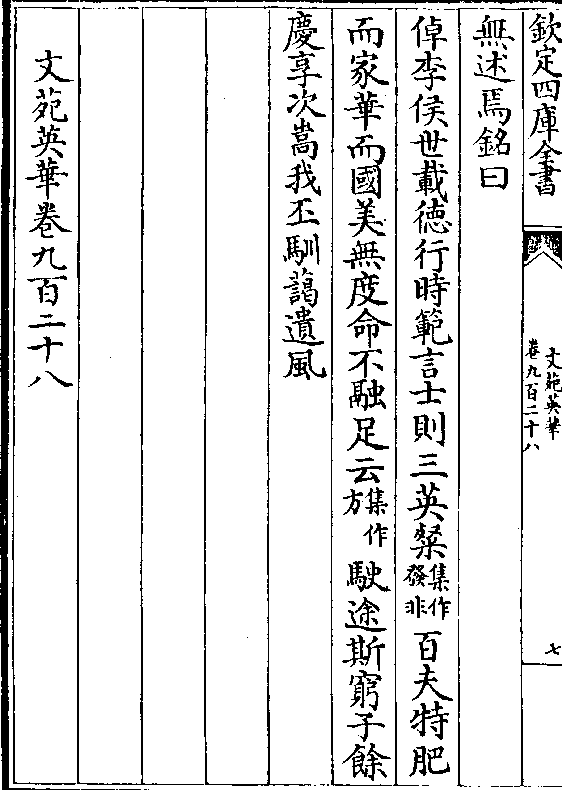 欽定四庫全書
文苑英華
卷九百二十八
七
無述焉銘曰
倬李侯世載德行時範言士則三英粲集作發非百夫特肥
而家華而國美無度命不融足云集作方駛途斯窮子餘
慶享次嵩我丕馴藹遺風
文苑英華卷九百二十八